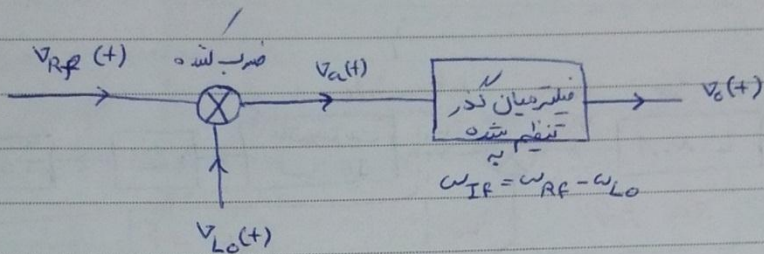 V_RF(t)
ضرب کننده
V_a(t)
فیلتر میان گذر
تنظیم شده
به
ω_IF = ω_RF - ω_LO
V_o(t)
V_LO(t)